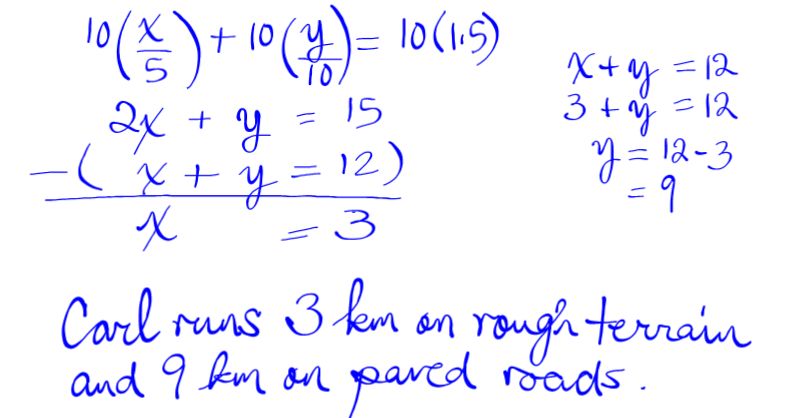 10(x/5) + 10(y/10) = 10(1.5)
2x + y = 15
-( x + y = 12)
x = 3
x + y = 12
3 + y = 12
y = 12 - 3
= 9
Carl runs 3 km on rough terrain
and 9 km on paved roads.